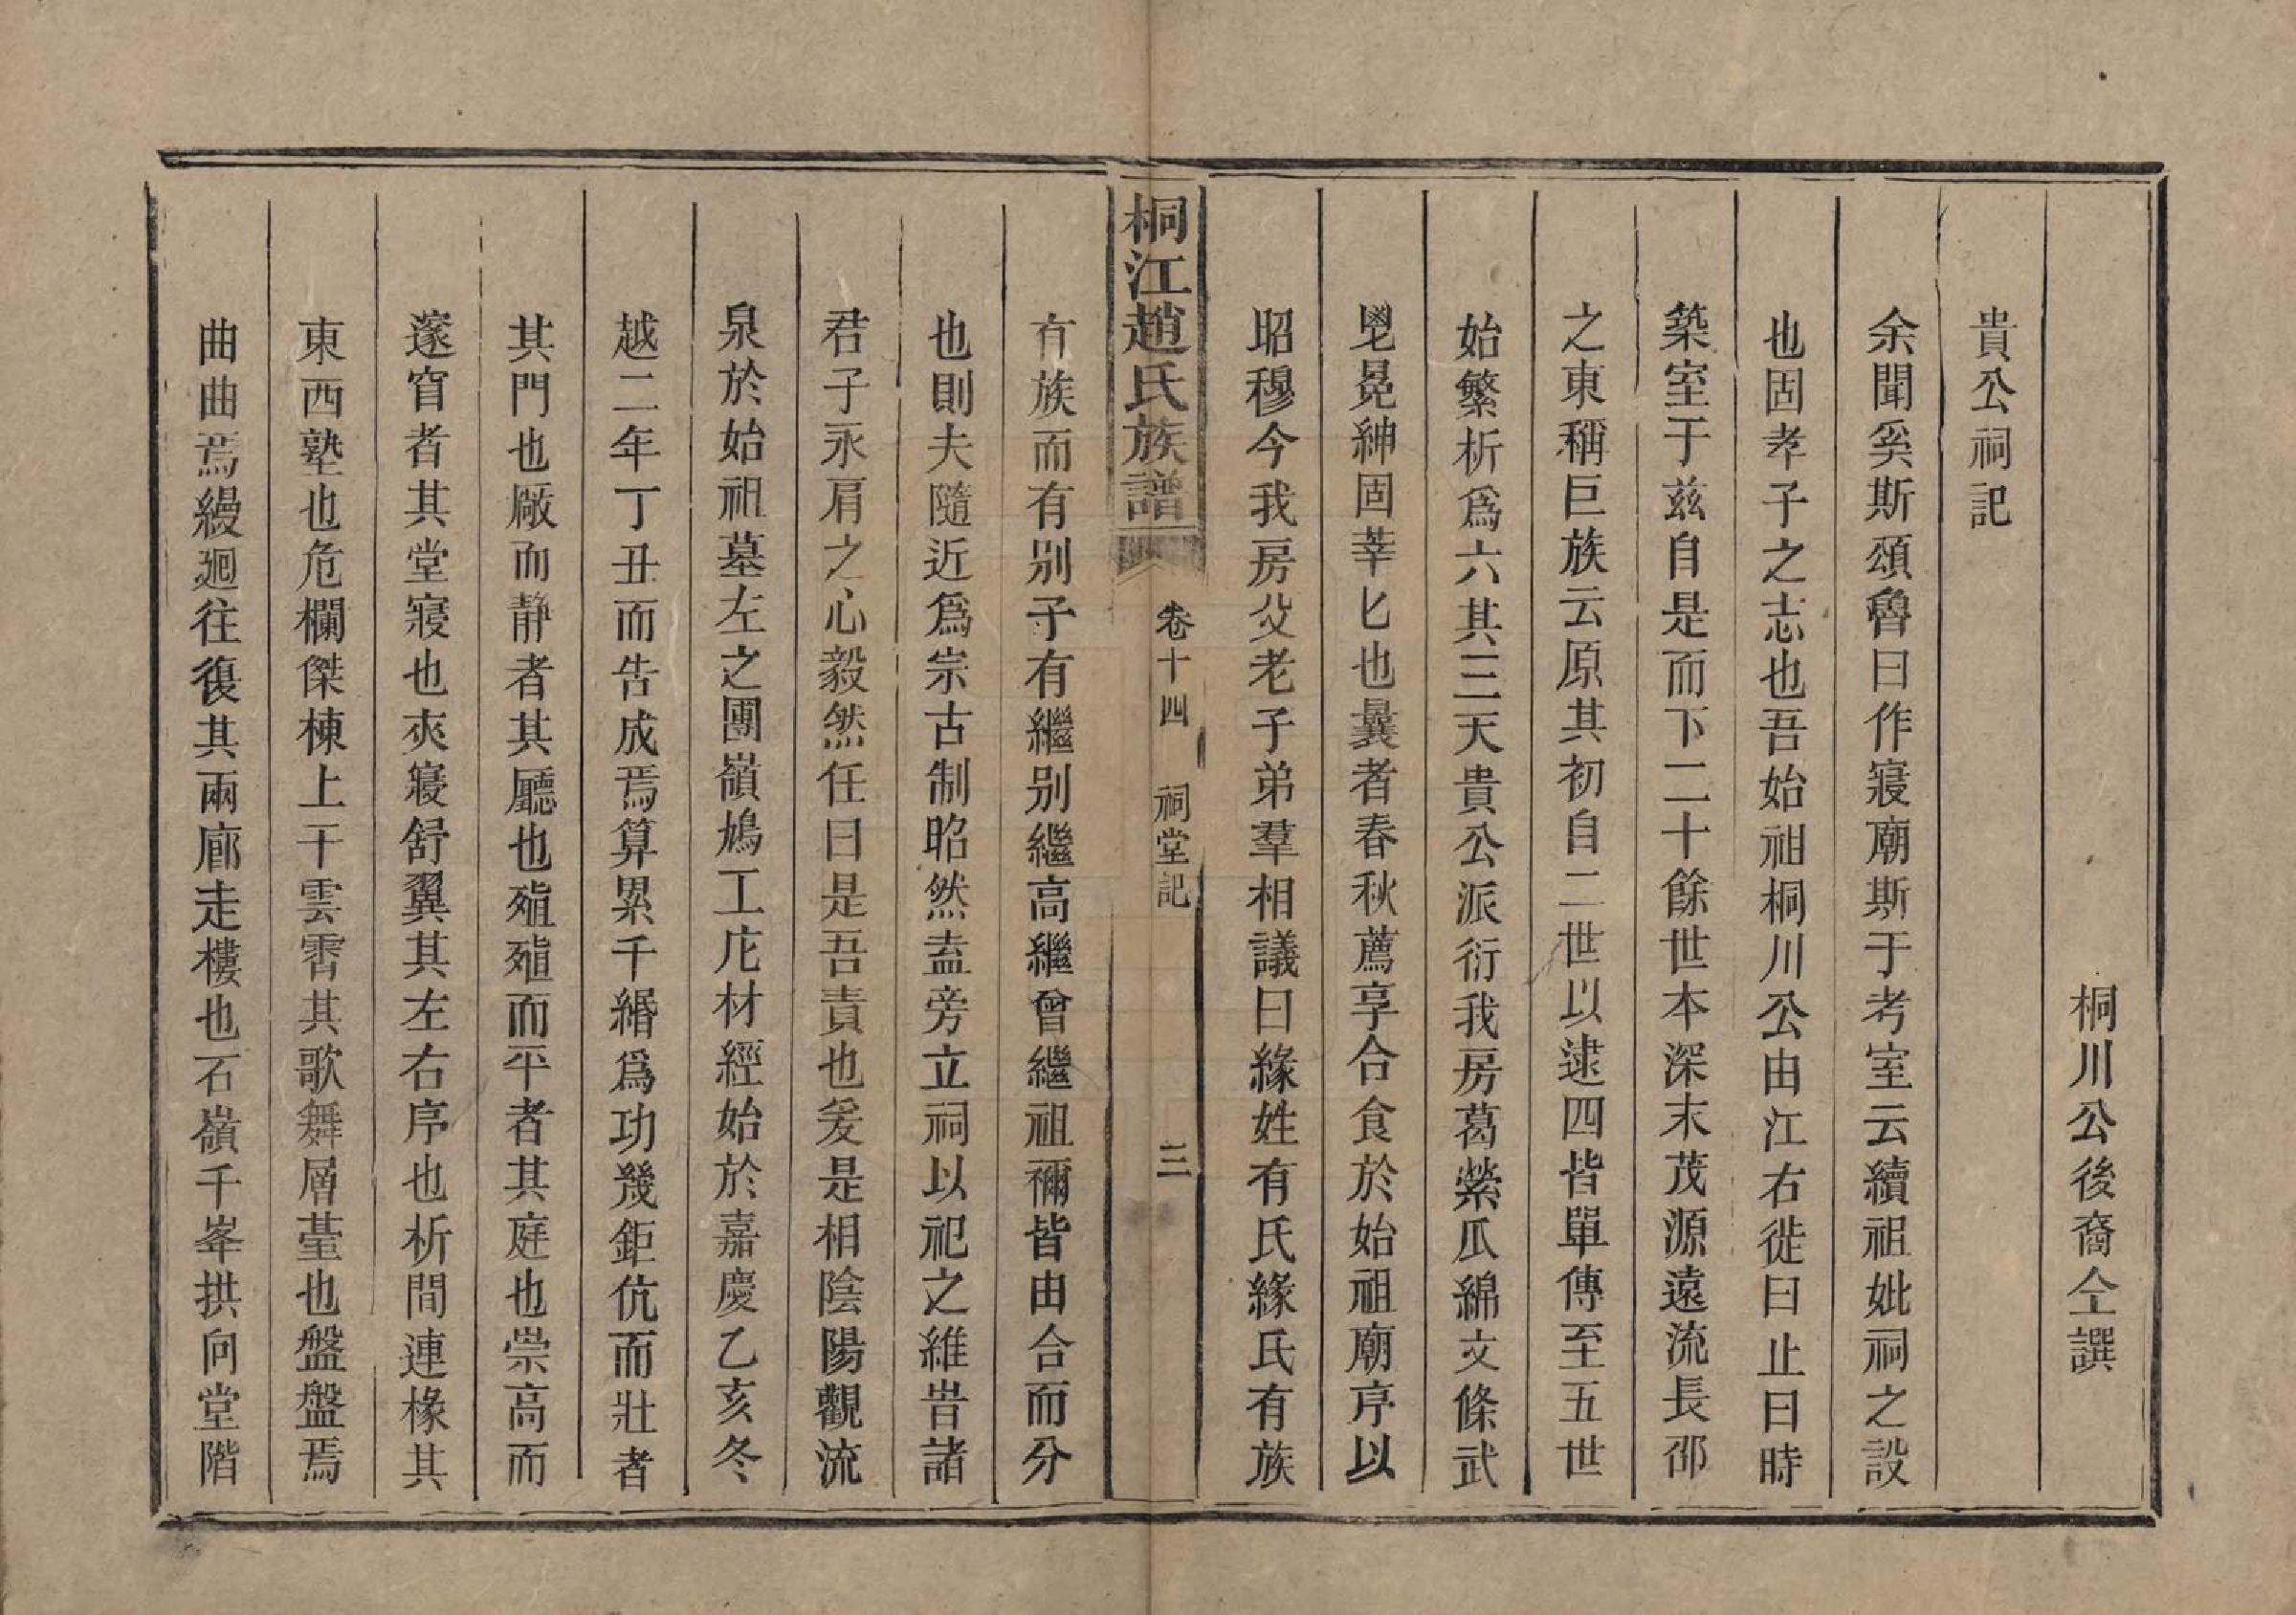 桐川公後裔仝譔
貴公祠記
余聞奚斯頌魯曰作寢廟斯于考室云續祖妣祠之設
也固孝子之志也吾始祖桐川公由江右徙曰止曰時
築室于茲自是而下二十餘世本深末茂源遠流長邵
之東稱巨族云原其初自二世以逮四皆單傳至五世
始繁析爲六其三天貴公派衍我房葛縈瓜綿文條武
鬯冕紳固莘匕也曩者春秋薦享合食於始祖廟序以
昭穆今我房父老子弟羣相議曰緣姓有氏緣氏有族
桐江趙氏族譜 卷十四 祠堂記 三
有族而有别子有繼别繼高繼曾繼祖禰皆由合而分
也則夫隨近爲宗古制昭然盍旁立祠以祀之維旹諸
君子永肩之心毅然任曰是吾責也爰是相陰陽觀流
泉於始祖墓左之團嶺鳩工庀材經始於嘉慶乙亥冬
越二年丁丑而告成焉算累千緡爲功幾鉅伉而壯者
其門也厰而静者其廳也殖殖而平者其庭也崇高而
邃窅者其堂寢也夾寢舒翼其左右序也析間連椽其
東西塾也危欄傑棟上干雲霄其歌舞層臺也盤盤焉
曲曲焉縵廻往復其兩廊走樓也石嶺千峯拱向堂階